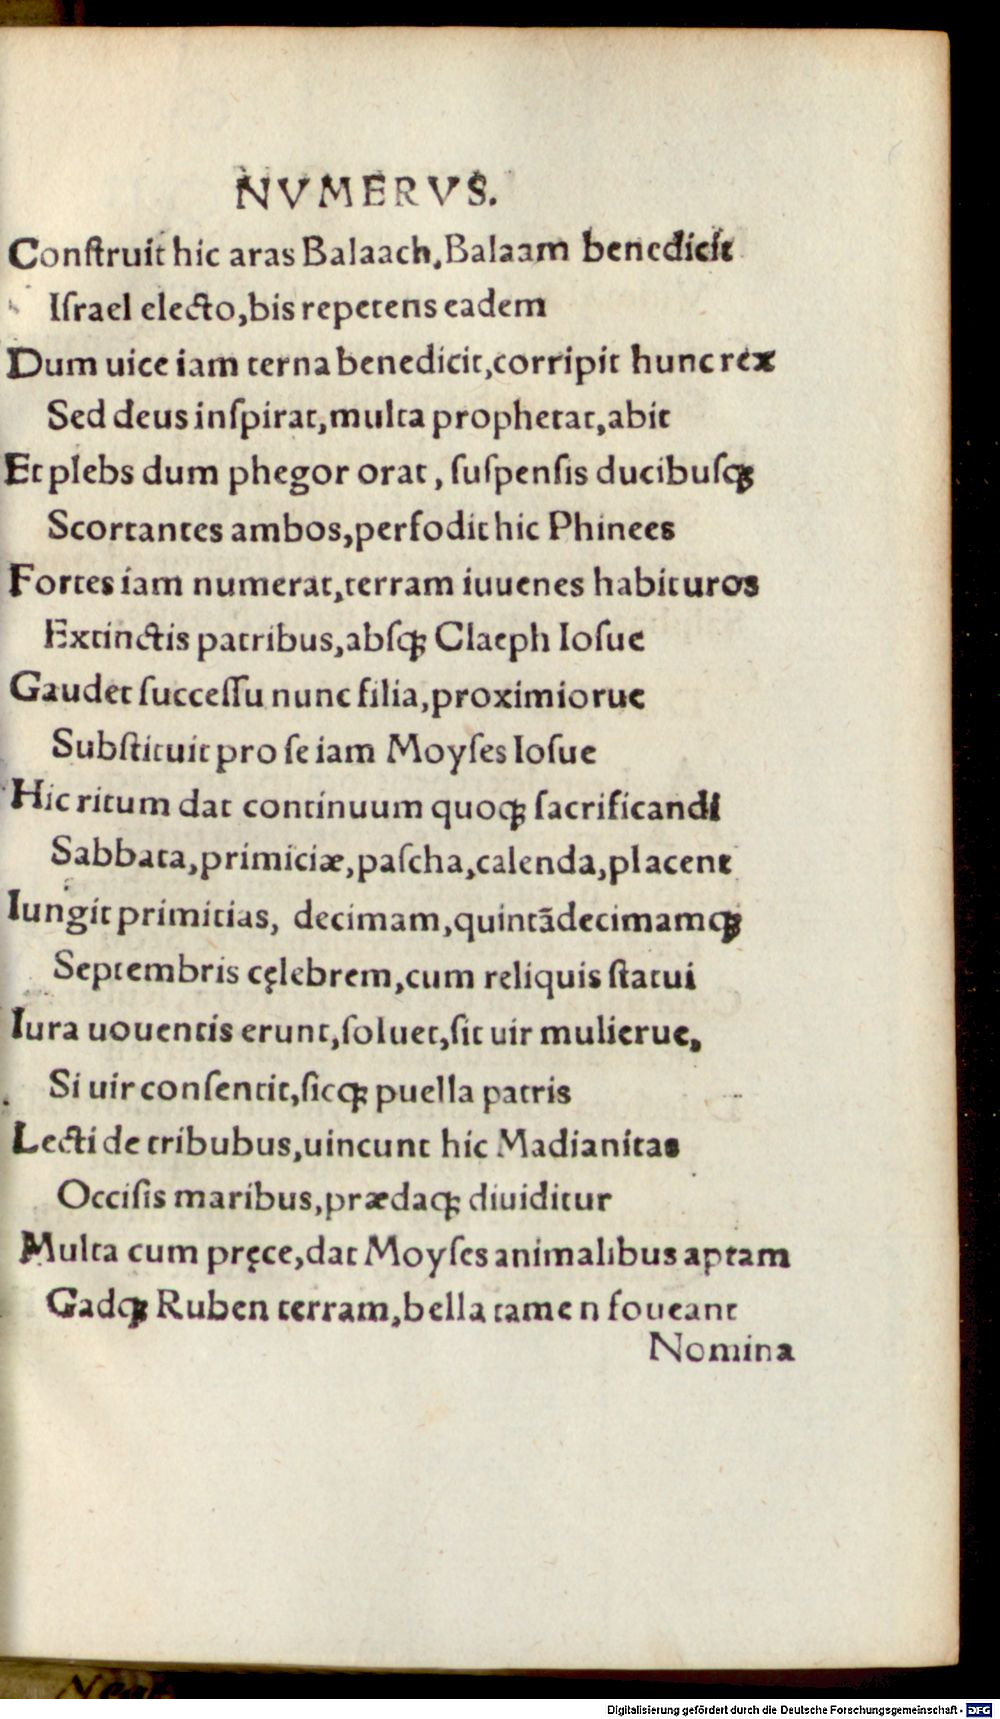 NVMERVS.
Conſtruit hic aras Balaach,Balaam benedicit
Iſrael electo,bis repetens eadem
Dum uice iam terna benedicit,corripit hunc rex
Sed deus inſpirat,multa prophetat,abit
Et plebs dum phegor orat, ſuſpenſis ducibuſqꝫ
Scortantes ambos,perfodit hic Phinees
Fortes iam numerat,terram iuuenes habituros
Extinctis patribus,abſqꝫ Claeph Ioſue
Gaudet ſucceſſu nunc filia,proximiorue
Subſtituit pro ſe iam Moyſes Ioſue
Hic ritum dat continuum quoqꝫ ſacrificandi
Sabbata,primiciæ,paſcha,calenda,placent
Iungit primitias, decimam,quintādecimamqꝫ
Septembris cęlebrem,cum reliquis ſtatui
Iura uouentis erunt,ſoluet,ſit uir mulierue,
Si uir conſentit,ſicqꝫ puella patris
Lecti de tribubus,uincunt hic Madianitas
Occiſis maribus,prædaqꝫ diuiditur
Multa cum pręce,dat Moyſes animalibus aptam
Gadqꝫ Ruben terram,bella tamen foueant
Nomina
Digitalisierung gefördert durch die Deutsche Forschungsgemeinschaft - DFG